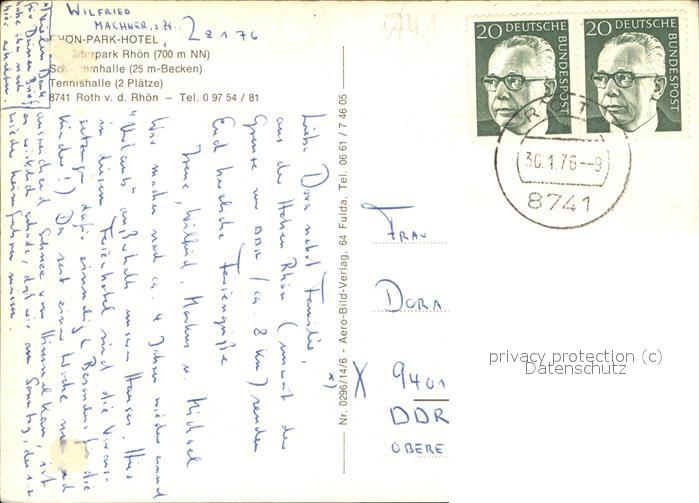 WILFRIED
MACHNER, z.Zt.: 28.1.76
RHÖN-PARK-HOTEL
park Rhön (700 m NN)
Sch mmhalle (25 m-Becken)
Tennishalle (2 Plätze)
8741 Roth v. d. Rhön – Tel. 0 97 54 / 81
Liebe Dora nebst Familie,
aus der Hohen Rhön (unweit der
Grenze zur DDR / ca. 8 km) senden
Euch herzliche Feriengrüße
Irene, Wilfried, Markus u. Michael
Wir machen nach ca. 4 Jahren wieder einmal
"Urlaub" außerhalb unseres Hauses. Hier
in diesem Ferienhotel sind die Voraus-
setzungen dafür einmalig (Besonders für die
Kinder!) Da seit einer Woche
ausreichend Schnee vom Himmel kam, ist
es wirklich schade, daß wir am Sonntag, den 1.2.
wieder heim fahren müssen.
Vielen Dank
für Deinen Brief
Nr. 0296/14/6 - Aero-Bild-Verlag, 64 Fulda, Tel. 06 61 / 7 46 05
20 DEUTSCHE BUNDESPOST
20 DEUTSCHE BUNDESPOST
30.1.76--9
8741
FRAU
DORA
X 9401
DDR
OBERE
privacy protection (c)
Datenschutz